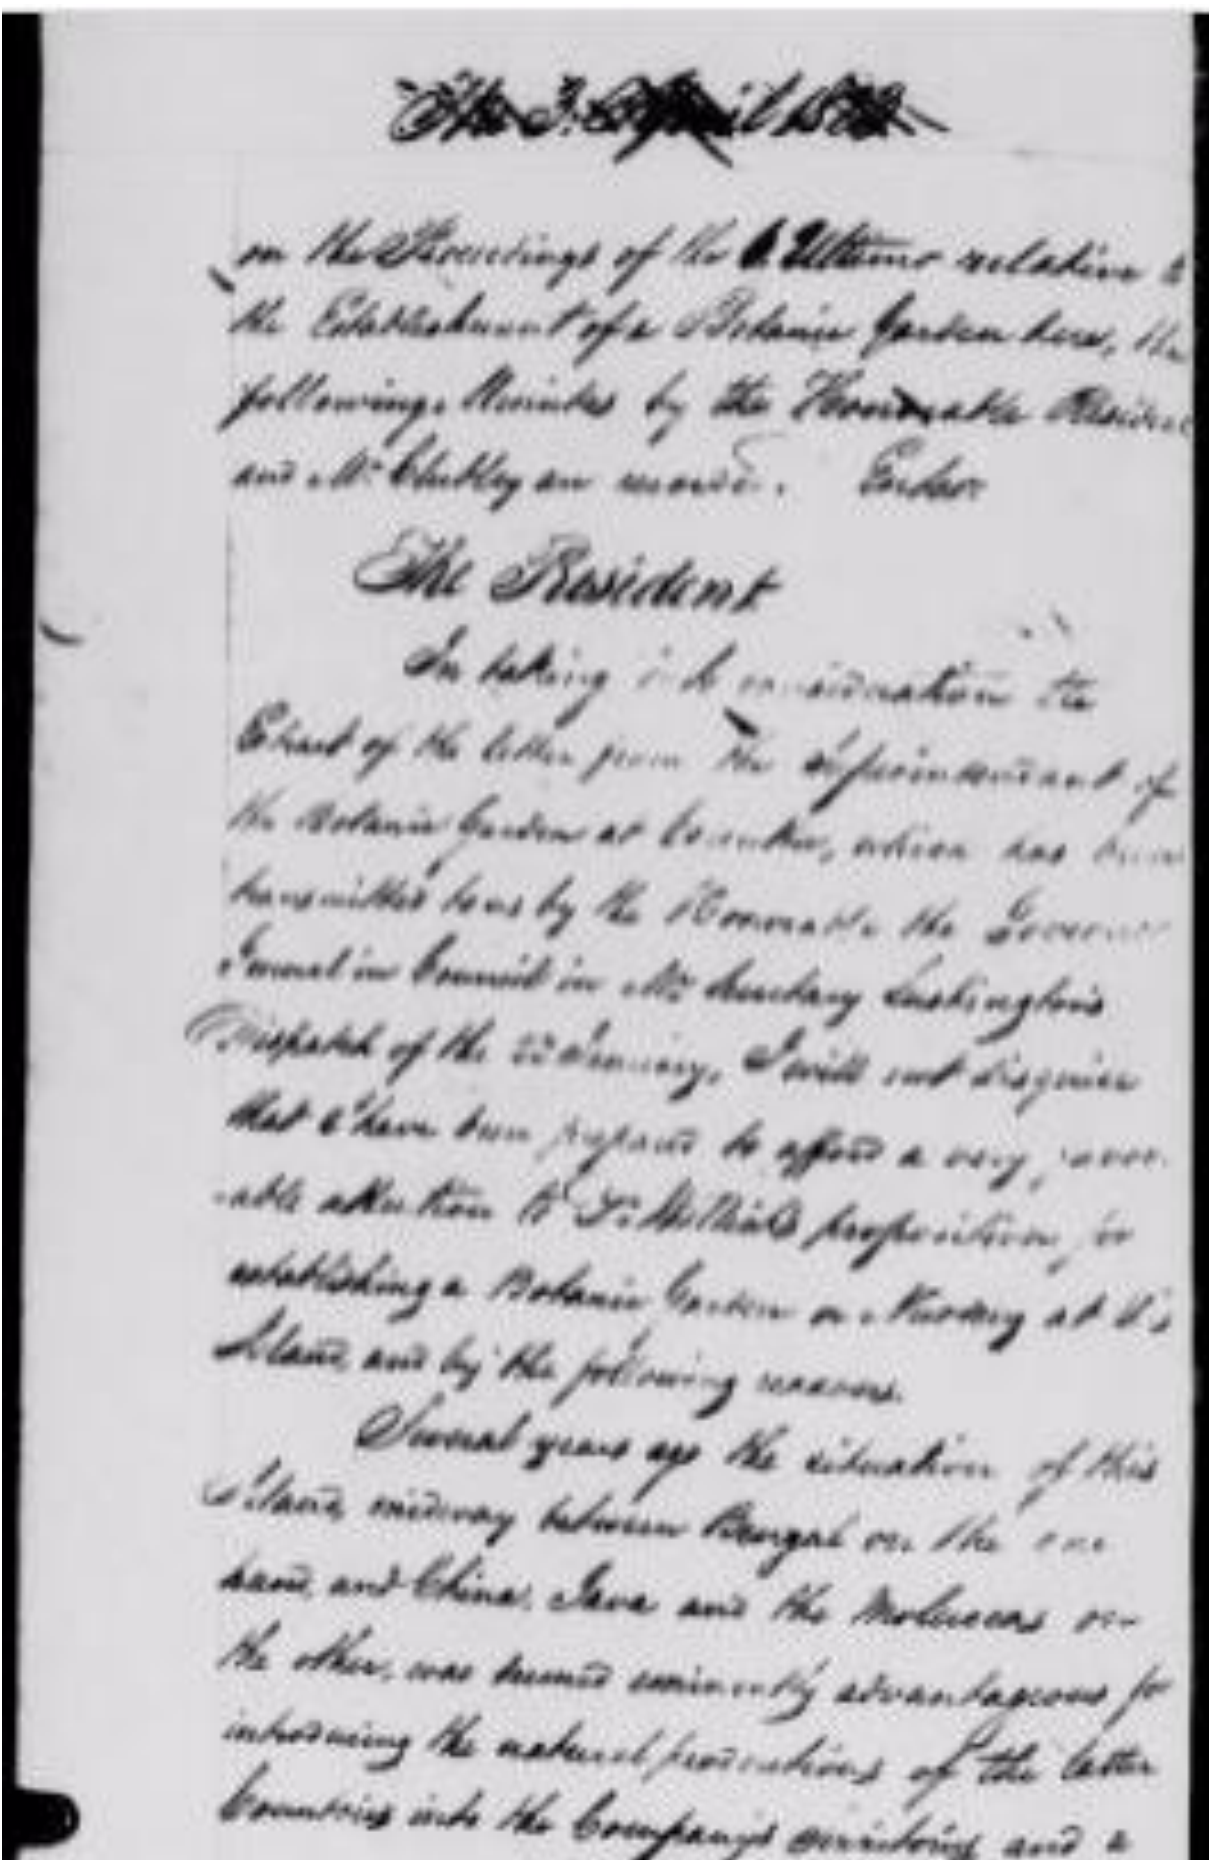 The 3. April 1822
on the Proceedings of the 6 Ultimo relative to
the Establishment of a Botanic Garden here, the
following Minutes by the Honorable President
and Mr. Clubley are recorded.
The President
In taking into consideration the
Extract of the letter from the Superintendant of
the Botanic Garden at Calcutta, which has been
transmitted to us by the Honorable the Governor
General in Council in Mr. Secretary Lushington's
Dispatch of the 22 January, I will not disguise
that I have been prepared to afford a very favor-
-able attention to Dr. Wallich's proposition for
establishing a Botanic Garden or Nursery at this
Island, and by the following reasons.
Several years ago the situation of this
Island, midway between Bengal on the one
hand, and China, Java and the Moluccas on
the other, was deemed eminently advantageous for
introducing the natural productions of the latter
Countries into the Company's territories and a